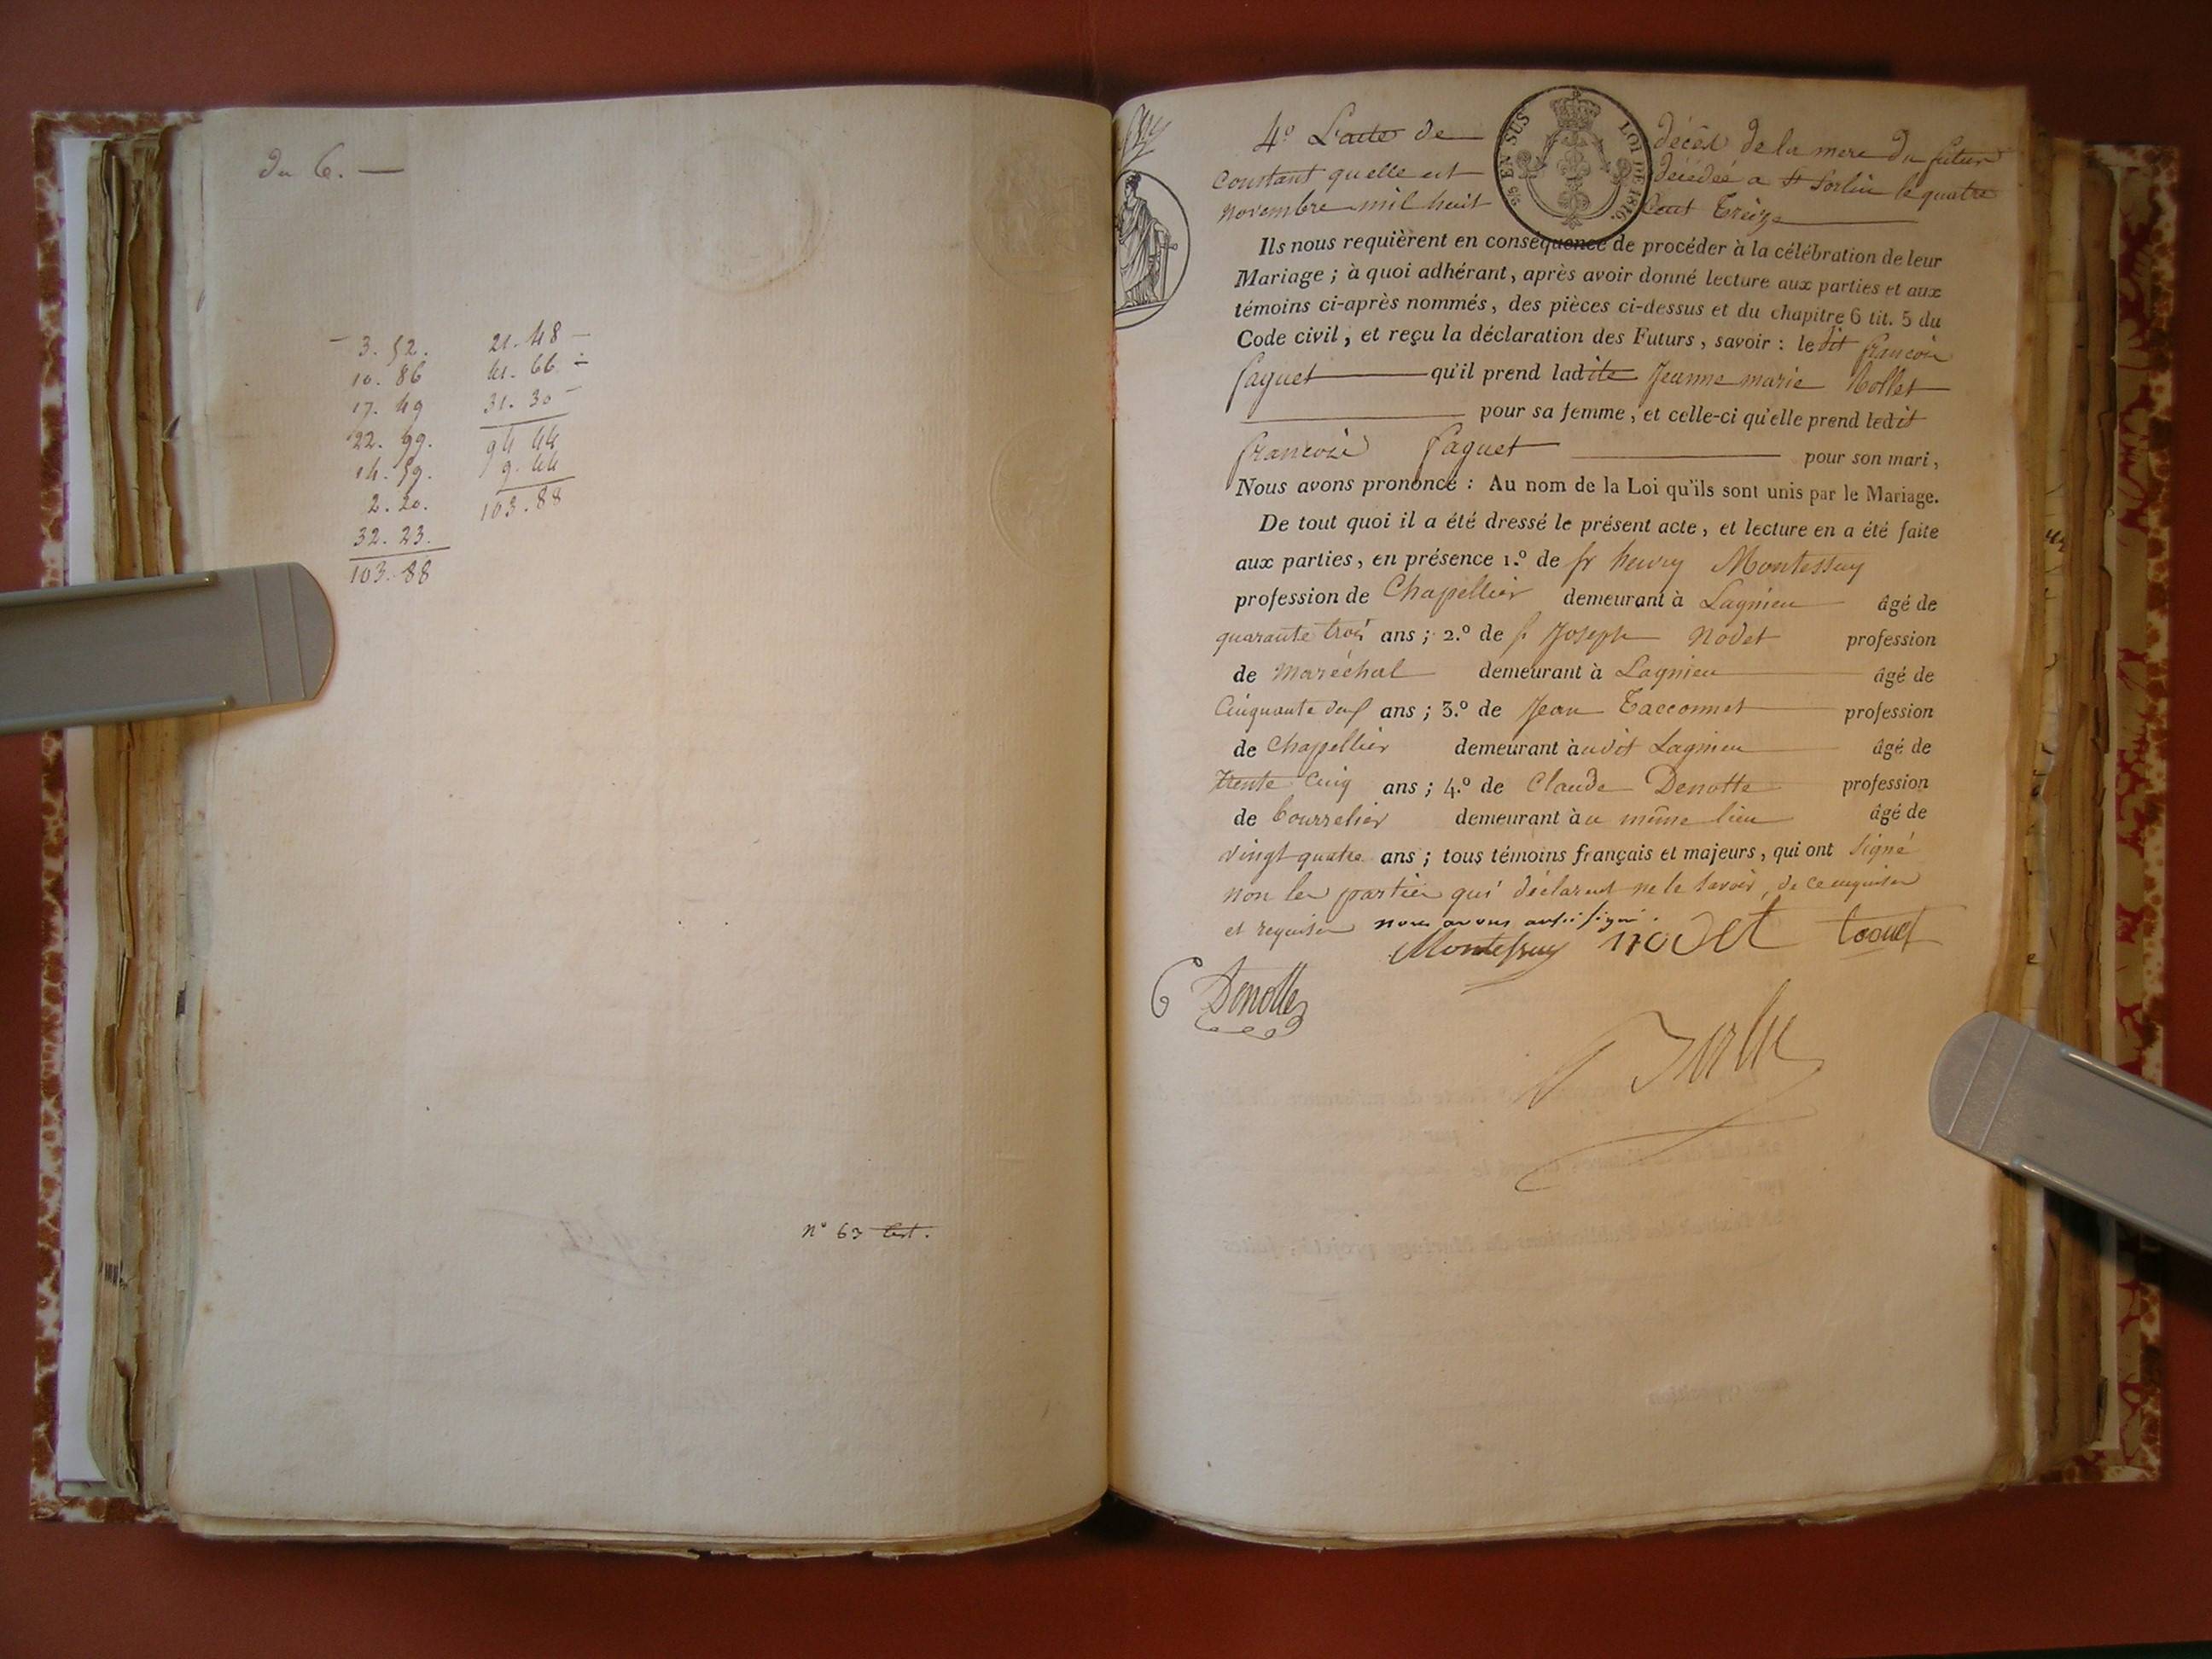 du 6. —
3. 52.
10. 86
17. 49
22. 99.
14. 59.
2. 20.
32. 23.
103. 88
21. 48 —
41. 66 —
31. 30 —
94 44
9. 44
103. 88
n° 63
4° L'acte de décès de la mere du futur
constant quelle est décédée a St Sorlin le quatre
novembre mil huit Cent treize
EN SUS LOI DE 1816.
Ils nous requièrent en conséquence de procéder à la célébration de leur
Mariage ; à quoi adhérant, après avoir donné lecture aux parties et aux
témoins ci-après nommés, des pièces ci-dessus et du chapitre 6 tit. 5 du
Code civil, et reçu la déclaration des Futurs, savoir : le dit francois
faguet qu'il prend ladite Jeanne marie Collet
pour sa femme, et celle-ci qu'elle prend ledit
francois faguet pour son mari,
Nous avons prononcé : Au nom de la Loi qu'ils sont unis par le Mariage.
De tout quoi il a été dressé le présent acte, et lecture en a été faite
aux parties, en présence 1.° de sr henry Montessuy
profession de Chapellier demeurant à Lagnieu âgé de
quarante trois ans ; 2.° de s. Joseph nodet profession
de maréchal demeurant à Lagnieu âgé de
Cinquante deux ans ; 3.° de Jean Tacconnet profession
de Chapellier demeurant audit Lagnieu âgé de
trente cinq ans ; 4.° de Claude Denotte profession
de bourrelier demeurant au même lieu âgé de
vingt quatre ans ; tous témoins français et majeurs, qui ont signé
non les parties qui déclarent ne le savoir, de ce enquises
et requises nous avons aussi signé.
Montessuy nodet
Denotte